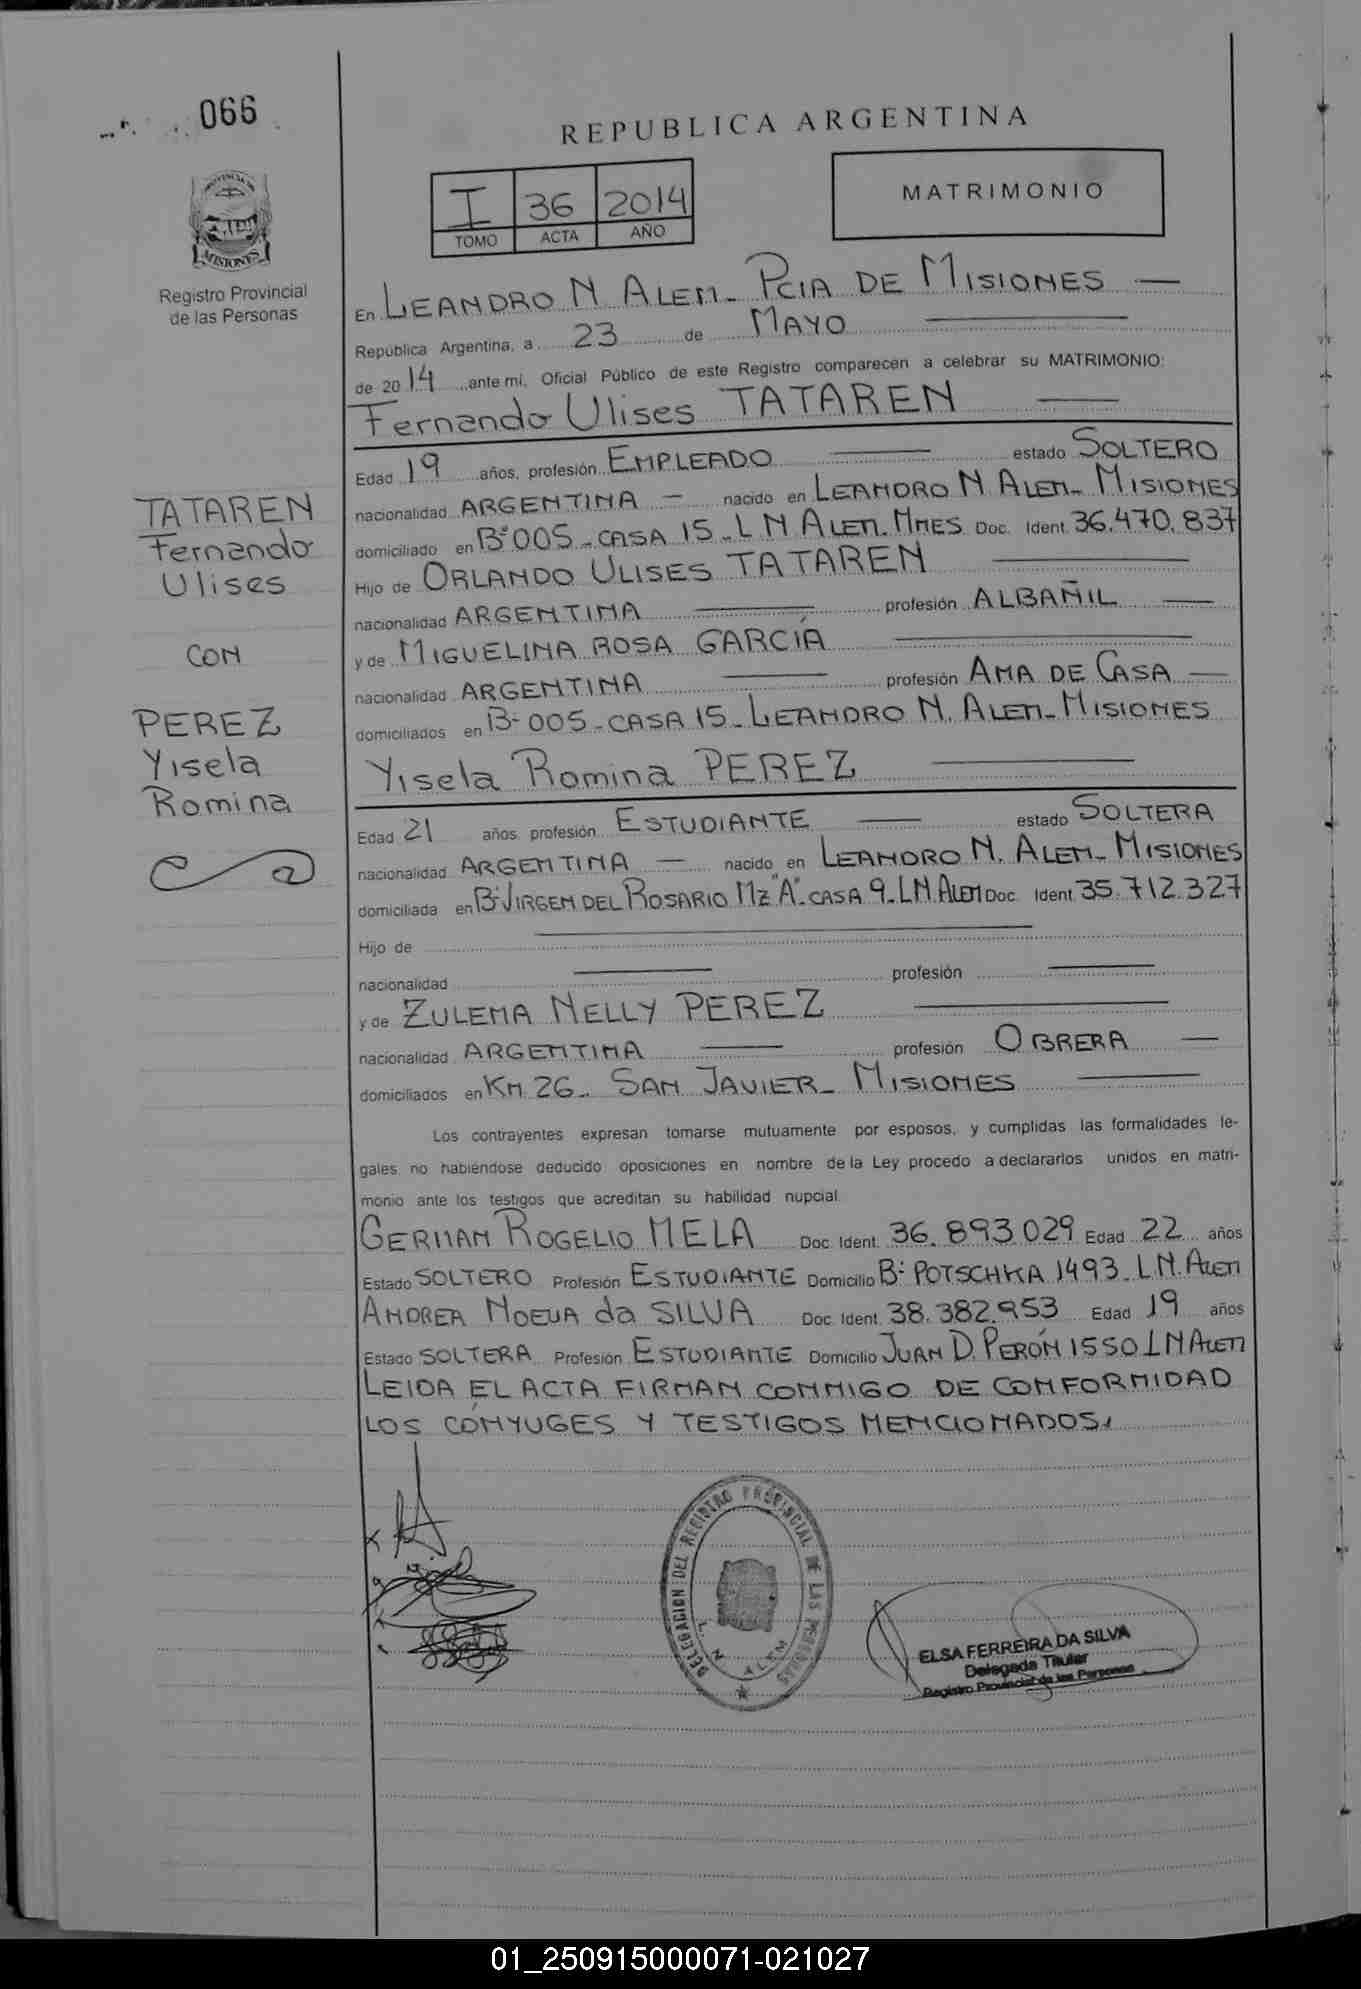 066
REPUBLICA ARGENTINA
PROVINCIA DE
MISIONES
Registro Provincial
de las Personas
I 36 2014
TOMO ACTA AÑO
MATRIMONIO
En LEANDRO N ALEM - PCIA DE MISIONES —
República Argentina, a 23 de MAYO —
de 2014 ante mi, Oficial Público de este Registro comparecen a celebrar su MATRIMONIO:
Fernando Ulises TATAREN —
Edad 19 años, profesión EMPLEADO — estado SOLTERO
nacionalidad ARGENTINA — nacido en LEANDRO N ALEM - MISIONES
domiciliado en Bº 005 - CASA 15 - L N ALEM. MNES Doc. Ident. 36.470.837
Hijo de ORLANDO ULISES TATAREN —
nacionalidad ARGENTINA — profesión ALBAÑIL —
y de MIGUELINA ROSA GARCÍA —
nacionalidad ARGENTINA — profesión AMA DE CASA —
domiciliados en Bº 005 - CASA 15 - LEANDRO N. ALEM - MISIONES
Yisela Romina PEREZ —
Edad 21 años profesión ESTUDIANTE — estado SOLTERA
nacionalidad ARGENTINA — nacido en LEANDRO N. ALEM - MISIONES
domiciliada en Bº VIRGEN DEL ROSARIO Mz "A" - CASA 9 - L N. ALEM Doc. Ident. 35.712.327
Hijo de —
nacionalidad — profesión —
y de ZULEMA NELLY PEREZ —
nacionalidad ARGENTINA — profesión OBRERA —
domiciliados en KM. 26 - SAN JAVIER - MISIONES —
Los contrayentes expresan tomarse mutuamente por esposos, y cumplidas las formalidades le-
gales no habiéndose deducido oposiciones en nombre de la Ley procedo a declararlos unidos en matri-
monio ante los testigos que acreditan su habilidad nupcial.
GERMAN ROGELIO MELA Doc. Ident. 36.893.029 Edad 22 años
Estado SOLTERO Profesión ESTUDIANTE Domicilio Bº POTSCHKA 1493 - L N. ALEM
ANDREA NOELIA da SILVA Doc. Ident. 38.382.953 Edad 19 años
Estado SOLTERA Profesión ESTUDIANTE Domicilio JUAN D. PERÓN 1550 L N ALEM
LEIDA EL ACTA FIRMAN CONMIGO DE CONFORMIDAD
LOS CÓNYUGES Y TESTIGOS MENCIONADOS.
TATAREN
Fernando
Ulises
CON
PEREZ
Yisela
Romina
DELEGACION DEL REGISTRO PROVINCIAL DE LAS PERSONAS
L. N. ALEM
ELSA FERREIRA DA SILVA
Delegada Titular
Registro Provincial de las Personas
01_250915000071-021027